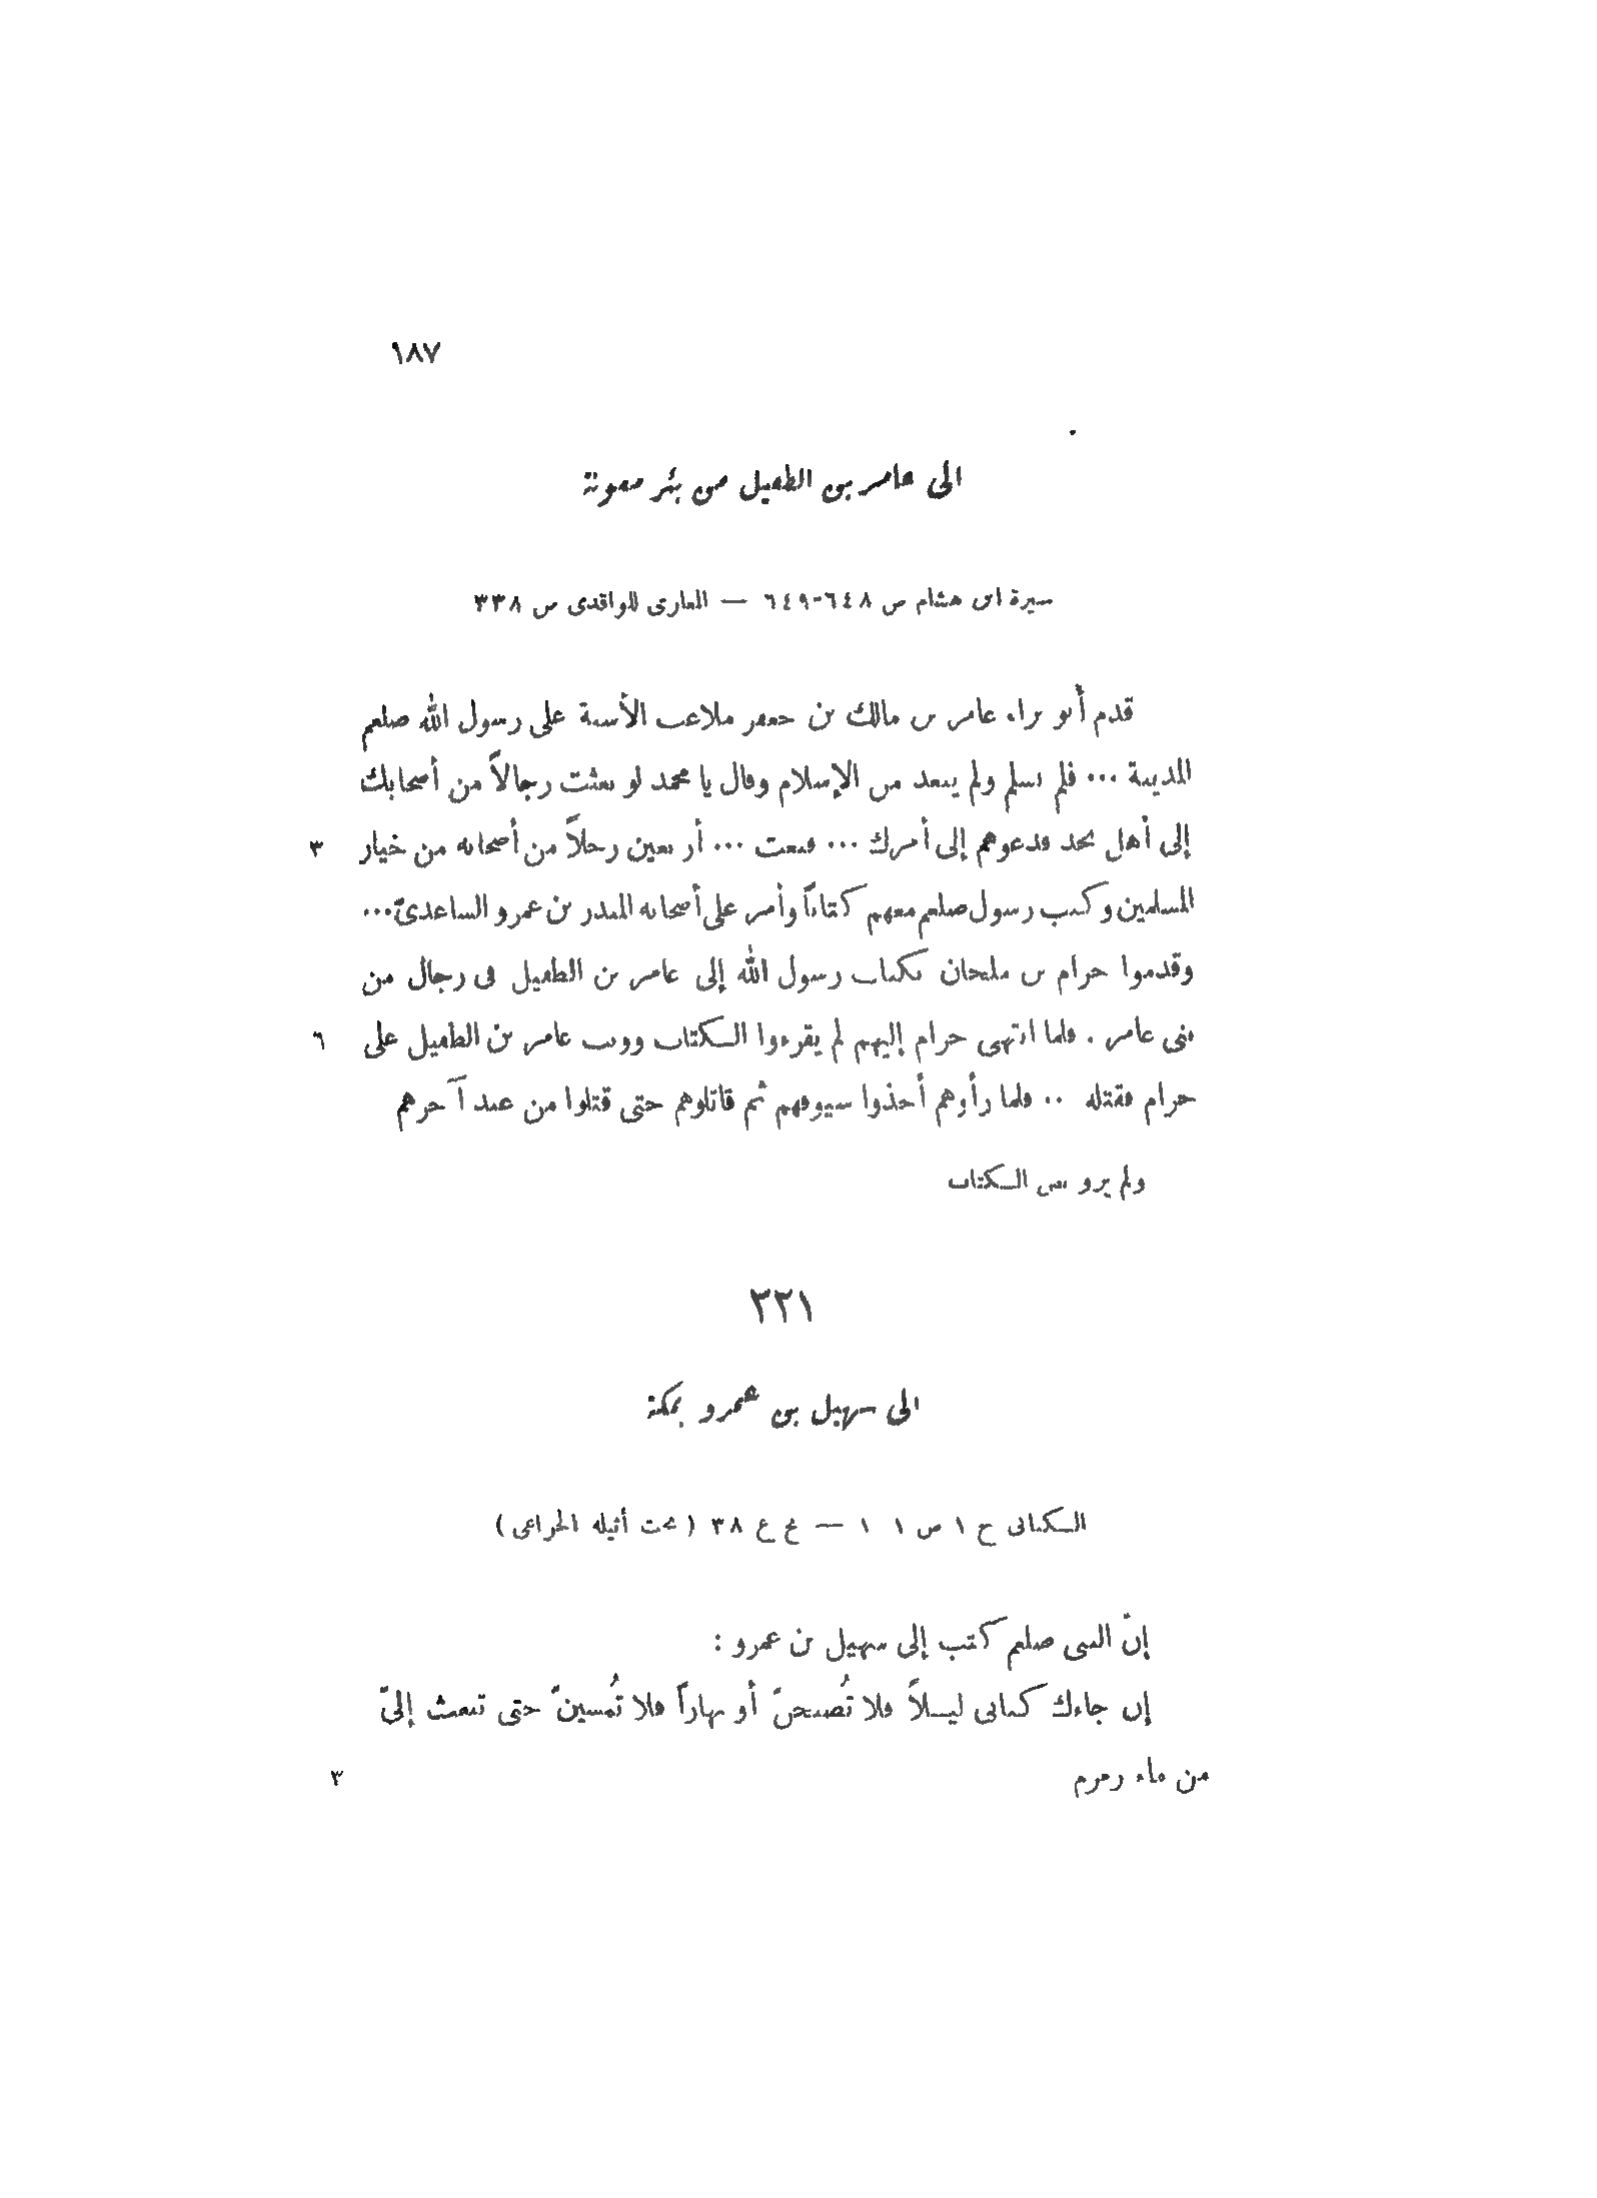 ١٨٧
الى عامر بن الطفيل من بئر معونة
سيرة ابن هشام ص ٦٤٨-٦٤٩ — المغازى للواقدى ص ٣٣٨
قدم أبو براء عامر بن مالك بن جعفر ملاعب الأسنة على رسول الله صلعم
المدينة ... فلم يسلم ولم يبعد من الإسلام وقال يا محمد لو بعثت رجالاً من أصحابك
إلى أهل نجد فدعوهم إلى أمرك ... فبعث ... أربعين رجلاً من أصحابه من خيار ٣
المسلمين وكتب رسول صلعم معهم كتاباً وأمر على أصحابه المنذر بن عمرو الساعدىّ...
وقدموا حرام بن ملحان بكتاب رسول الله إلى عامر بن الطفيل فى رجال من
بنى عامر . فلما انتهى حرام إليهم لم يقرءوا الكتاب ووثب عامر بن الطفيل على ٦
حرام فقتله .. فلما رأوهم أخذوا سيوفهم ثم قاتلوهم حتى قتلوا من عند آخرهم
ولم يرو نص الكتاب
٢٢١
الى سهيل بن عمرو بمكة
الكتانى ج ١ ص ١ ١ — بح ع ٣٨ (تحت أثيلة الخزاعى)
إنّ النبى صلعم كتب إلى سهيل بن عمرو :
إن جاءك كتابى ليلاً فلا تُصبحنّ أو نهاراً فلا تُمسينّ حتى تبعث إلىّ
من ماء زمزم ٣